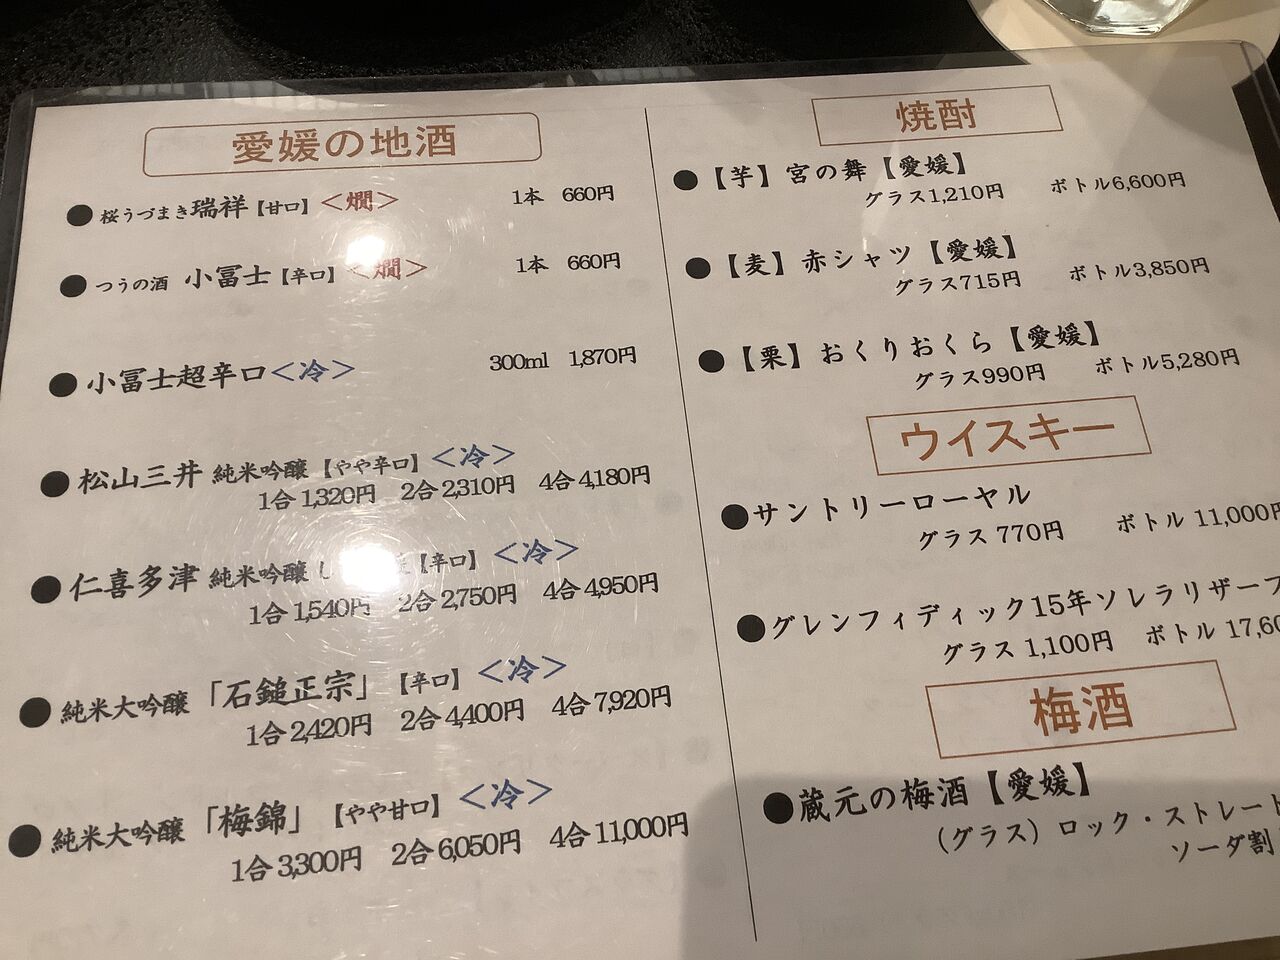 愛媛の地酒
●桜うづまき瑞祥【甘口】<燗> 1本 660円
●つうの酒 小冨士【辛口】<燗> 1本 660円
●小冨士超辛口<冷> 300ml 1,870円
●松山三井 純米吟醸【やや辛口】<冷>
1合1,320円 2合2,310円 4合4,180円
●仁喜多津 純米吟醸 し【辛口】<冷>
1合1,540円 2合2,750円 4合4,950円
●純米大吟醸「石鎚正宗」【辛口】<冷>
1合2,420円 2合4,400円 4合7,920円
●純米大吟醸「梅錦」【やや甘口】<冷>
1合3,300円 2合6,050円 4合11,000円
焼酎
●【芋】宮の舞【愛媛】
グラス1,210円 ボトル6,600円
●【麦】赤シャツ【愛媛】
グラス715円 ボトル3,850円
●【栗】おくりおくら【愛媛】
グラス990円 ボトル5,280円
ウイスキー
●サントリーローヤル
グラス 770円 ボトル 11,000円
●グレンフィディック15年ソレラリザーブ
グラス 1,100円 ボトル 17,60
梅酒
●蔵元の梅酒【愛媛】
（グラス）ロック・ストレート
ソーダ割